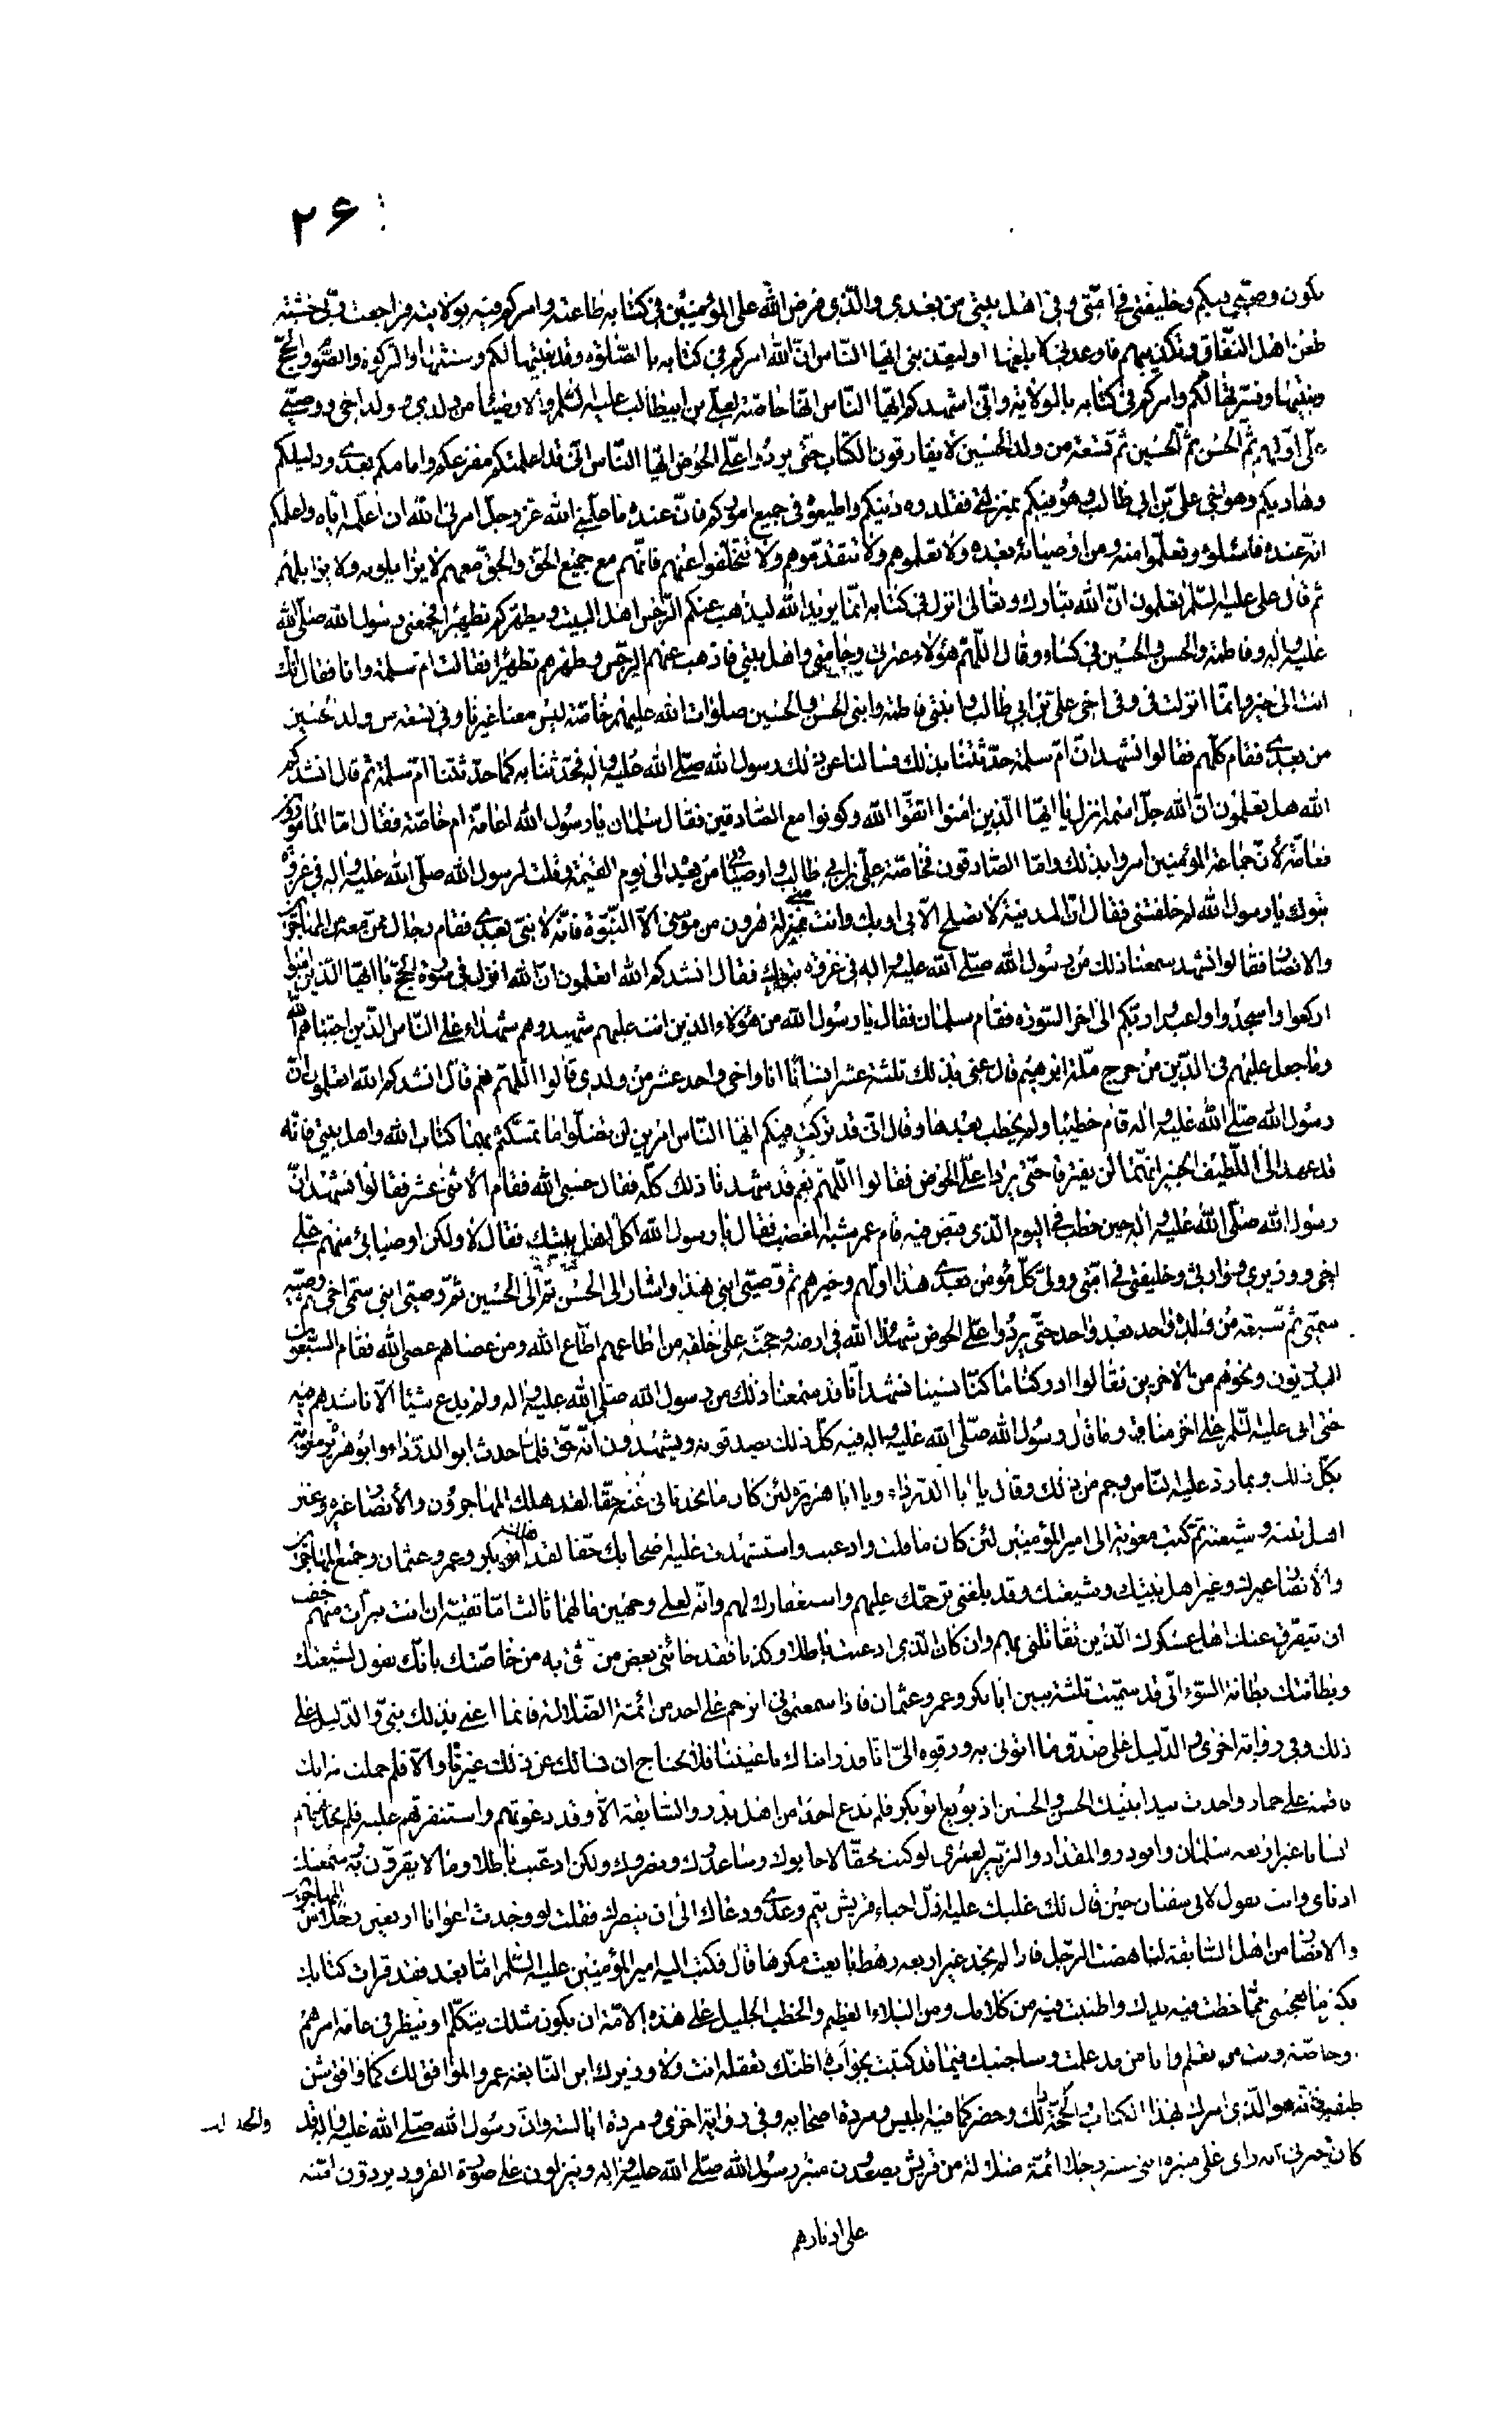 ۲۶
يكون وصيي فيكم وخليفتي في امتي وفي اهل بيتي من بعدي والذي فرض الله على المؤمنين في كتابه طاعته وامركم فيه بولايته فراجعت ربي خشية
طعن اهل النفاق وتكذيبهم فاوعدني لابلغنها او ليعذبني ايها الناس ان الله امركم في كتابه بالصلوة وقد بينتها لكم وسننتها والزكوة والصوم والحج
فبينتها وفسرتها لكم وامركم في كتابه بالولاية واني اشهدكم ايها الناس انها خاصة لعلي بن ابيطالب عليه السلم والاوصياء من ولدي وولد اخي ووصيي
علي اولهم ثم الحسن ثم الحسين ثم تسعة من ولد الحسين لا يفارقون الكتاب حتى يردوا علي الحوض ايها الناس اني قد اعلمتكم مفزعكم وامامكم بعدي ودليلكم
وهاديكم وهو اخي علي بن ابي طالب وهو فيكم بمنزلتي فقلدوه دينكم واطيعوه في جميع اموركم فان عنده ما علمني الله عز وجل امرني الله ان اعلمه اياه واعلمكم
انه عنده فاسئلوه وتعلموا منه ومن اوصيائه بعده ولا تعلموهم ولا تتقدموهم ولا تتخلفوا عنهم فانهم مع جميع الحق والحق معهم لا يزايلونه ولا يزايلهم
ثم قال علي عليه السلم اتعلمون ان الله تبارك وتعالى انزل في كتابه انما يريد الله ليذهب عنكم الرجس اهل البيت ويطهركم تطهيرا فجمعني رسول الله صلى الله
عليه واله وفاطمة والحسن والحسين في كساء وقال اللهم هؤلاء عترتي وخاصتي واهل بيتي فاذهب عنهم الرجس وطهرهم تطهيرا فقالت ام سلمة وانا فقال انك
انت الى خير وانما انزلت في وفي اخي علي بن ابي طالب وابنتي فاطمة وابني الحسن والحسين صلوات الله عليهم خاصة ليس معنا غيرنا وفي تسعة من ولد حسين
من بعدي فقام كلهم فقالوا نشهد ان ام سلمة حدثتنا بذلك فسالنا عن ذلك رسول الله صلى الله عليه واله فحدثنا به كما حدثتنا ام سلمة ثم قال انشدكم
الله هل تعلمون ان الله جل اسمه انزل يا ايها الذين امنوا اتقوا الله وكونوا مع الصادقين فقال سلمان يا رسول الله اعامة ام خاصة فقال اما المامورون
فعامة لان جماعة المؤمنين امروا بذلك واما الصادقون فخاصة علي بن ابي طالب واوصيائي من بعده الى يوم القيمة وقلت لرسول الله صلى الله عليه واله في غزوة
تبوك يا رسول الله لم خلفتني فقال ان المدينة لا تصلح الا بي او بك وانت مني بمنزلة هرون من موسى الا النبوة فانه لا نبي بعدي فقام رجال ممن معه من المهاجرين
والانصار فقالوا نشهد سمعنا ذلك من رسول الله صلى الله عليه واله في غزوة تبوك فقال انشدكم الله اتعلمون ان الله انزل في سورة الحج يا ايها الذين امنوا
اركعوا واسجدوا واعبدوا ربكم الى اخر السورة فقام سلمان فقال يا رسول الله من هؤلاء الذين انت عليهم شهيد وهم شهداء على الناس الذين اجتباهم الله
وما جعل عليهم في الدين من حرج ملة ابرهيم قال عنى بذلك ثلثة عشر انسانا انا واخي واحد عشر من ولدي قالوا اللهم نعم قال انشدكم الله اتعلمون ان
رسول الله صلى الله عليه واله قام خطيبا ولم يخطب بعدها وقال اني قد تركت فيكم ايها الناس امرين لن تضلوا ما تمسكتم بهما كتاب الله واهل بيتي فانه
قد عهد الي اللطيف الخبير انهما لن يفترقا حتى يردا علي الحوض فقالوا اللهم نعم قد شهدنا ذلك كله فقال حسبي الله فقام الاثنى عشر فقالوا نشهد ان
رسول الله صلى الله عليه واله حين خطب في اليوم الذي قبض فيه قام عمر شبه المغضب فقال يا رسول الله اكل اهل بيتك فقال لا ولكن اوصيائي منهم علي
اخي ووزيري ووارثي وخليفتي في امتي وولي كل مؤمن بعدي هذا اولهم وخيرهم ثم وصيي ابني هذا واشار الى الحسن ثم الى الحسين ثم وصيي ابني سمي اخي ثم وصيه
سميي ثم سبعة من ولده واحد بعد واحد حتى يردوا علي الحوض شهداء الله في ارضه وحججه على خلقه من اطاعهم اطاع الله ومن عصاهم عصى الله فقام السبعون
البدريون ونحوهم من الاخرين فقالوا ادركتنا ما كنا نسينا نشهد انا قد سمعنا ذلك من رسول الله صلى الله عليه واله ولم يدع شيئا الا ناشدهم فيه
حتى اتى عليه السلم على اخر مناقبه وما قال رسول الله صلى الله عليه واله فيه كل ذلك يصدقونه ويشهدون انه حق فلما حدث ابو الدرداء وابو هريرة معوية
بكل ذلك وبما رد عليه الناس وجم من ذلك وقال يا ابا الدرداء ويا ابا هريرة لئن كان ما تحدثاني عنه حقا لقد هلك المهاجرون والانصار غيره وغير
اهل بيته وشيعته ثم كتب معوية الى امير المؤمنين لئن كان ما قلت وادعيت واستشهدت عليه اصحابك حقا لقد هلك ابو بكر وعمر وعثمان وجميع المهاجرين
والانصار غيرك وغير اهل بيتك وشيعتك وقد بلغني ترحمك عليهم واستغفارك لهم وانه لعلى وجهين ما لهما ثالث اما تقية ان انت تبرأت منهم خفت
ان يتفرق عنك اهل عسكرك الذين تقاتلني بهم وان كان الذي ادعيت باطلا وكذبا فقد جائني بعض من تثق به من خاصتك بانك تقول لشيعتك
وبطانتك بطانة السوء اني قد سميت ثلثة بنين ابا بكر وعمر وعثمان فاذا سمعتموني اترحم على احد من ائمة الضلالة فانما اعني بذلك بني والدليل على
ذلك وفي رواية اخرى والدليل على صدق ما اتوني به ورقوه الي انا قد رايناك باعيننا فلا نحتاج ان نسالك عن ذلك غيرنا والا فلم حملت امراتك
فاطمة على حمار واخذت بيد ابنيك الحسن والحسين اذ بويع ابو بكر فلم تدع احدا من اهل بدر والسابقة الا وقد دعوتهم واستنفرتهم عليه فلم تجد منهم
انسانا غير اربعة سلمان وابو ذر والمقداد والزبير لعمري لو كنت محقا لاجابوك وساعدوك ونصروك ولكن ادعيت باطلا وما لا يقرون به وسمعتك
اذناي وانت تقول لابي سفيان حين قال لك غلبك عليه اذل احياء قريش تيم وعدي ودعاك الى ان ينصرك فقلت لو وجدت اعوانا اربعين رجلا من المهاجرين
والانصار من اهل السابقة لناهضت الرجل فلما لم تجد غير اربعة رهط بايعت مكرها قال فكتب اليه امير المؤمنين عليه السلم اما بعد فقد قرات كتابك
فكثر تعجبي مما خطت فيه يدك واطنبت فيه من كلامك ومن البلاء العظيم والخطب الجليل على هذه الامة ان يكون مثلك يتكلم او ينظر في عامة امرهم
وخاصته وانت من تعلم وانا من قد علمت وساجيبك فيما قد كتبت بجواب لا اظنك تعقله انت ولا وزيرك ابن النابغة عمرو الموافق لك كما وافق شن
طبقة فانه هو الذي امرك بهذا الكتاب وزينه لك وحضركما فيه ابليس ومردة اصحابه وفي رواية اخرى ومردة ابالسته وان رسول الله صلى الله عليه واله قد
كان خبرني انه راى على منبره اثنى عشر رجلا ائمة ضلالة من قريش يصعدون منبر رسول الله صلى الله عليه واله وينزلون على صورة القرود يردون امته
على ادبارهم